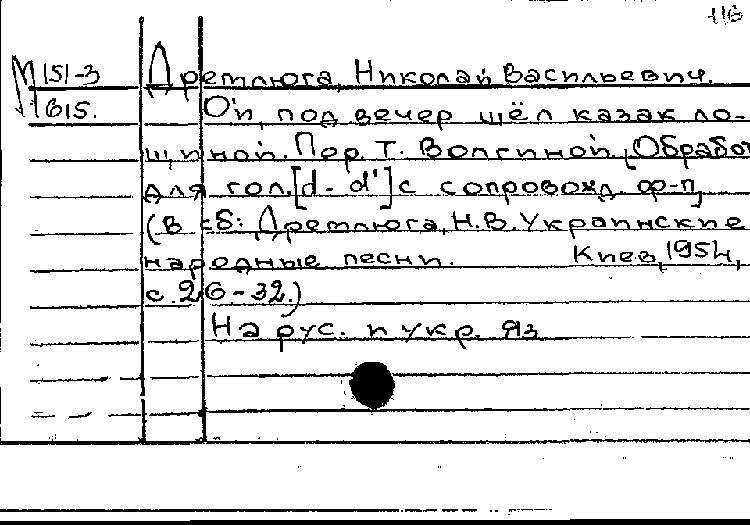 116
М 151-3 Дремлюга, Николай Васильевич.
615. Ой, под вечер шёл казак ло-
щиной. Пер. Т. Волгиной. [Обработ
для гол. [d - d'] с сопровожд. ф-п]
(В сб: Дремлюга, Н.В. Украинские
народные песни. Киев, 1954,
с. 26-32.)
На рус. и укр. яз